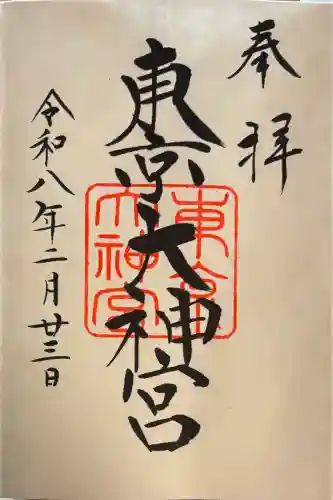 奉拝
東京大神宮
令和八年二月廿三日
東京
大神宮